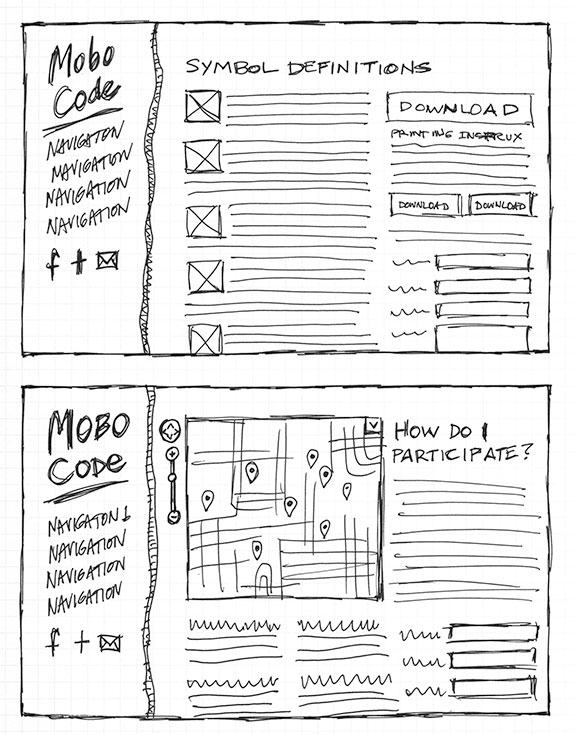 Mobo
Code
NAVIGATON
NAVIGATION
NAVIGATION
NAVIGATION
f +
SYMBOL DEFINITIONS
DOWNLOAD
PRINTING INSTRUX
DOWNLOAD DOWNLOAD
MOBO
CODE
NAVIGATON 1
NAVIGATION
NAVIGATION
NAVIGATION
f +
HOW DO I
PARTICIPATE?